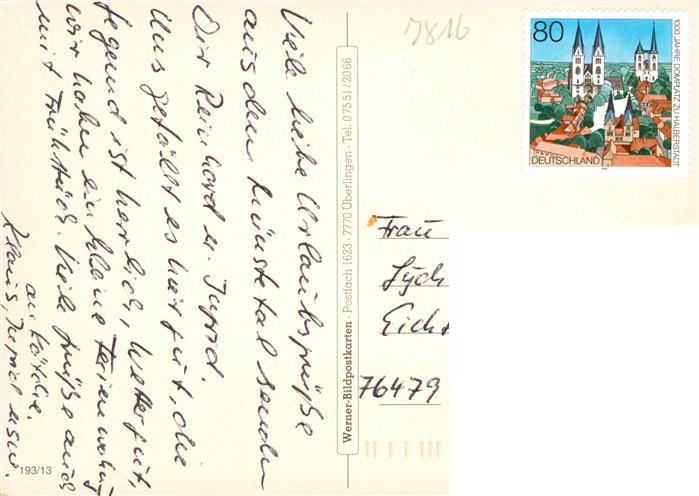 Viele liebe Urlaubsgrüße
aus dem Münstertal senden
Dir Reinhard u. Ingrid.
Uns gefällt es hier gut, die
Gegend ist herrlich, Wetter gut,
wir haben ein kleine Ferienwohnung
mit Frühstück. Viele Grüße auch
an
Klaus,
193/13
Werner-Bildpostkarten · Postfach 1623 · 7770 Überlingen · Tel. 07551/2066
7816
80
DEUTSCHLAND
1000 JAHRE DOMPLATZ ZU HALBERSTADT
Frau
Eich
76479